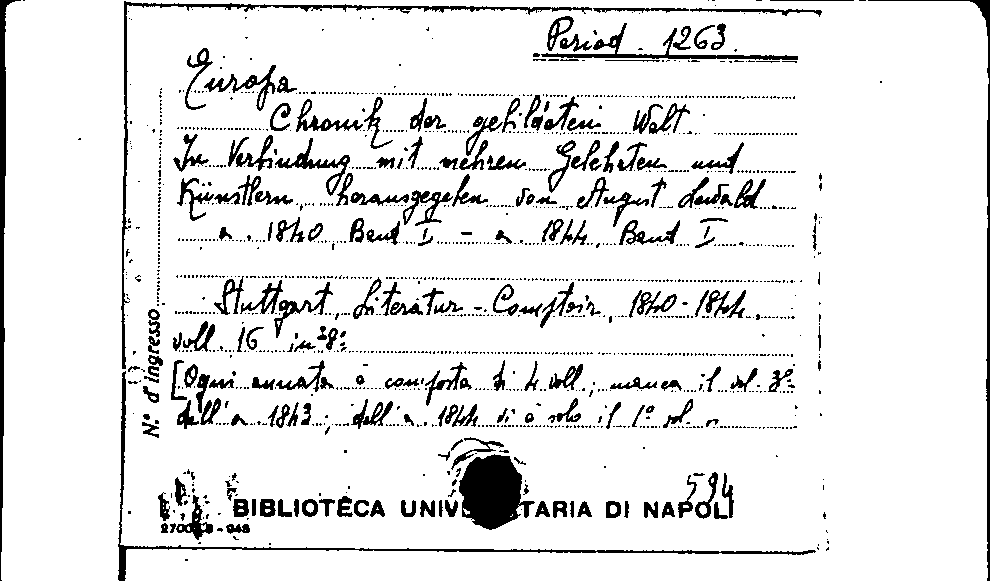 Period. 1263.
Europa
Chronik der gebildeten Welt.
In Verbindung mit mehren Gelehrten und
Künstlern, herausgegeben von August Lewald.
a. 1840, Band I - a. 1844, Band I.
Stuttgart, Literatur-Comptoir, 1840-1844.
voll. 16 in 8°
[Ogni annata è composta di 4 voll.; manca il vol. 3°
dell'a. 1843; dell'a. 1844 vi è solo il 1° vol.
N.° d'ingresso
594
BIBLIOTECA UNIV TARIA DI NAPOLI